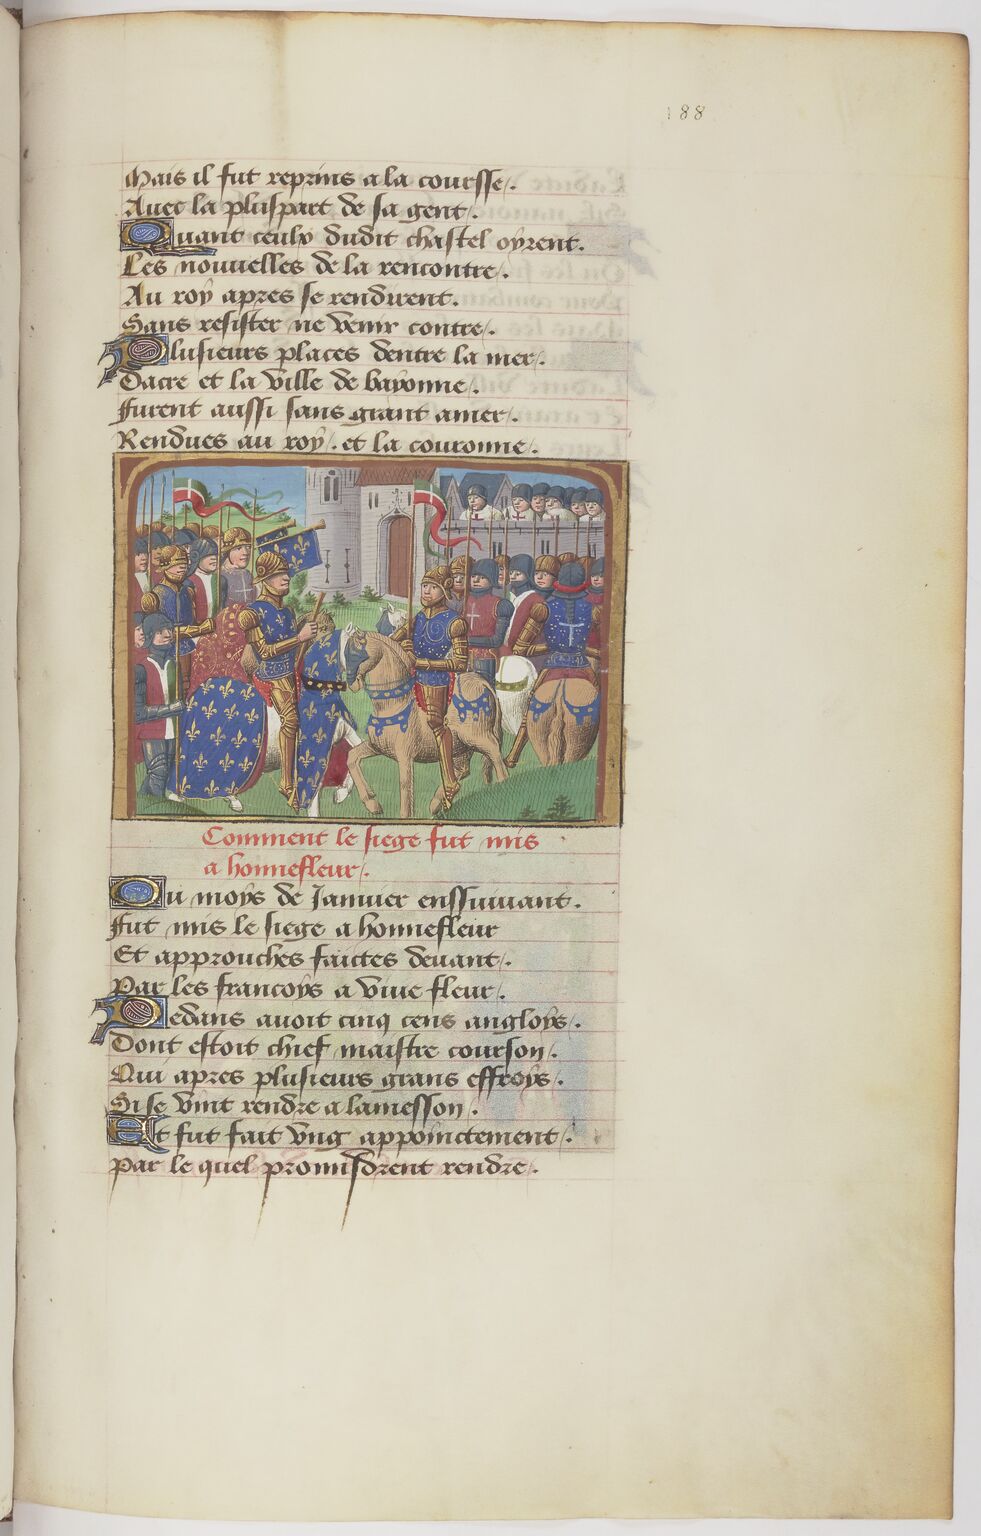 188
Mais il fut reprins a la coursse.
Avec la pluspart de sa gent.
Quant ceulx dudit chastel oyrent.
Les nouvelles de la rencontre.
Au roy apres se rendirent.
Sans resister ne venir contre.
Plusieurs places dentre la mer.
Dacre et la ville de bayonne.
Furent aussi sans grant amer.
Rendues au roy. et la couronne.
Comment le siege fut mis
a honnefleur.
Ou moys de Janvier enssuivant.
Fut mis le siege a honnefleur
Et approuches faictes devant.
Par les francoys a vive fleur.
Dedans avoit cinq cens angloys.
Dont estoit chief maistre courson.
Qui apres plusieurs grans effroys.
Si se vint rendre a lamesson.
Et fut fait ung appoinctement.
Par le quel promisdrent rendre.